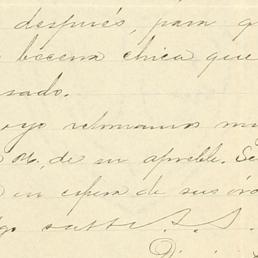 después, para q
bocina chica que
sado.
oyo retornamos mu
M, de su apreble. Se
en espera de sus óro
go satte S. S.